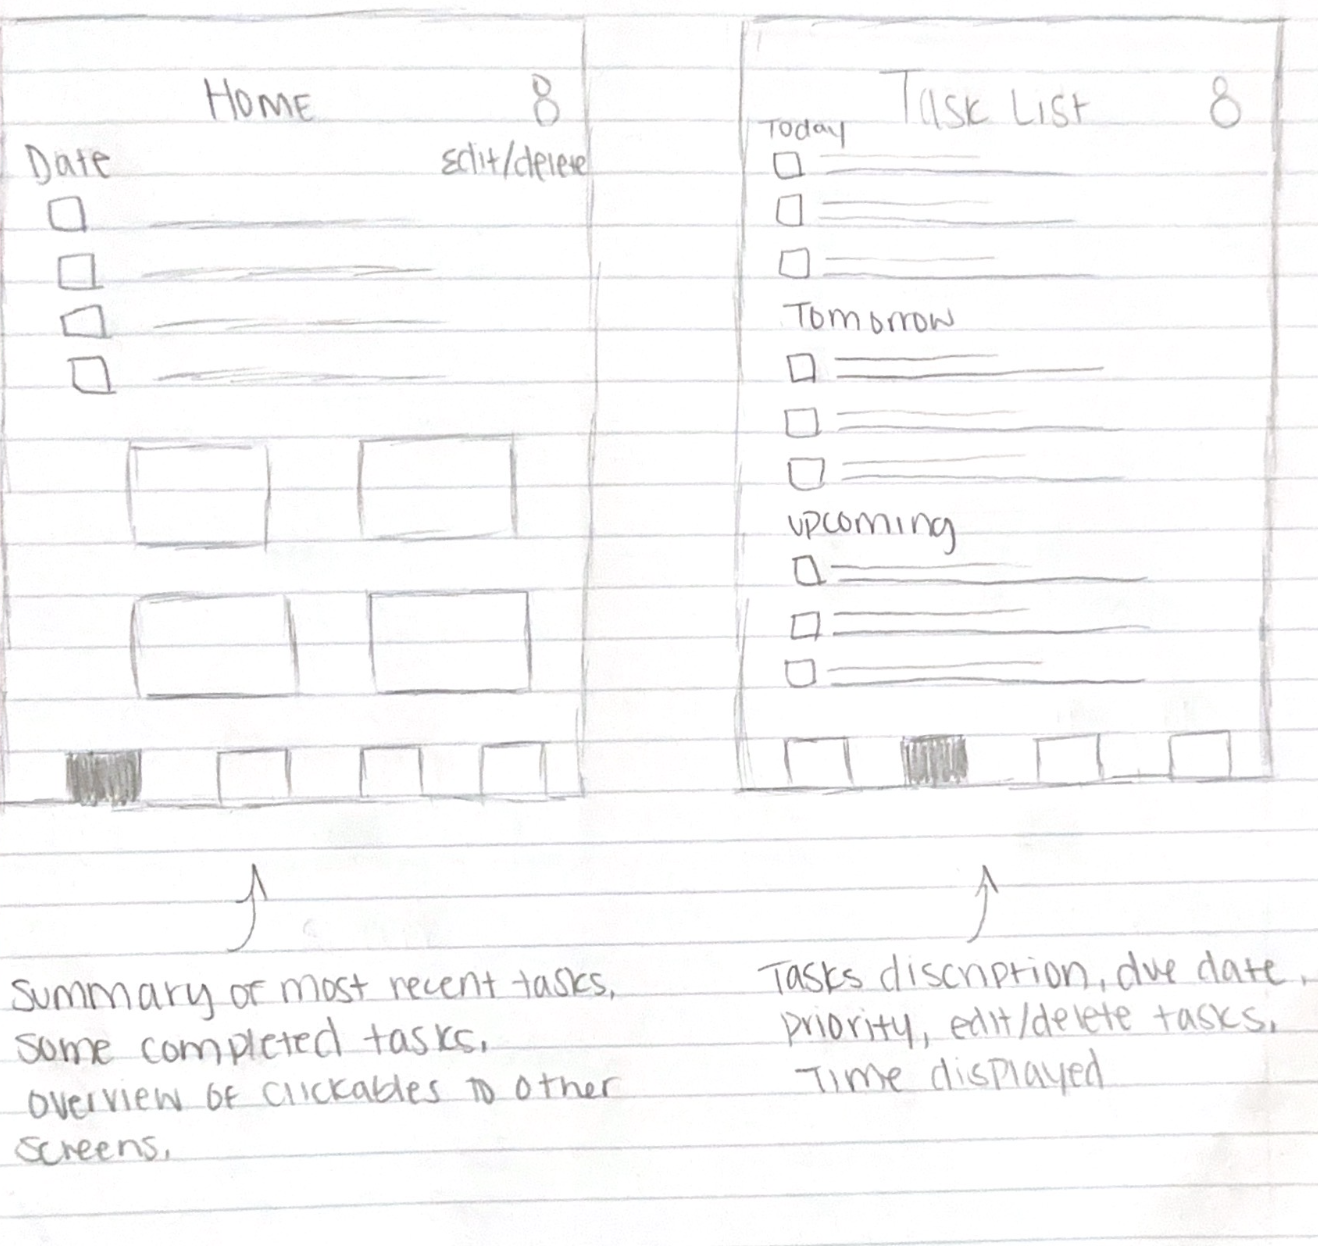 Home
Date
Edit/delete
Summary of most recent tasks,
some completed tasks.
overview of clickables to other
screens.
Task List
Today
Tomorrow
upcoming
Tasks discription, due date,
priority, edit/delete tasks,
Time displayed